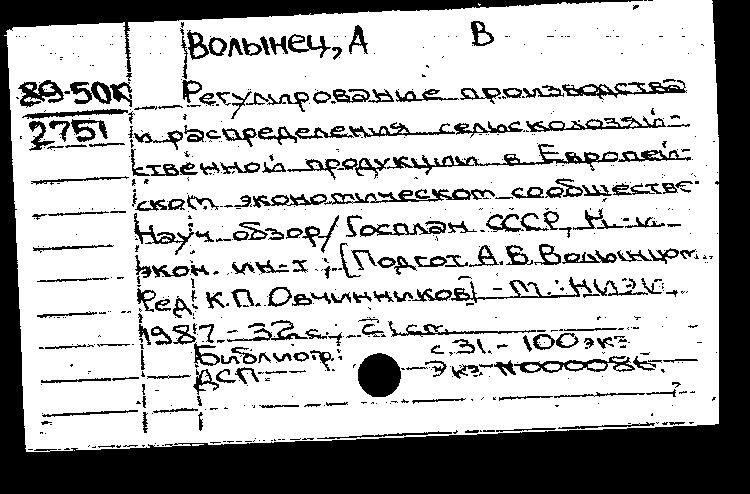 Волынец, А В
89-50К Регулирование производства
2751 и распределения сельскохозяй-
ственной продукции в Европей-
ском экономическом сообществе.
Науч. обзор/Госплан СССР, Н.-и.
экон. ин-т ; [Подгот. А.В. Волынцом.
Ред. К.П. Овчинников] - М.: НИЭИ,
1987 - 32 с.; 21 см.
Библиогр.: с. 31. - 100 экз
ДСП. Экз N000086.